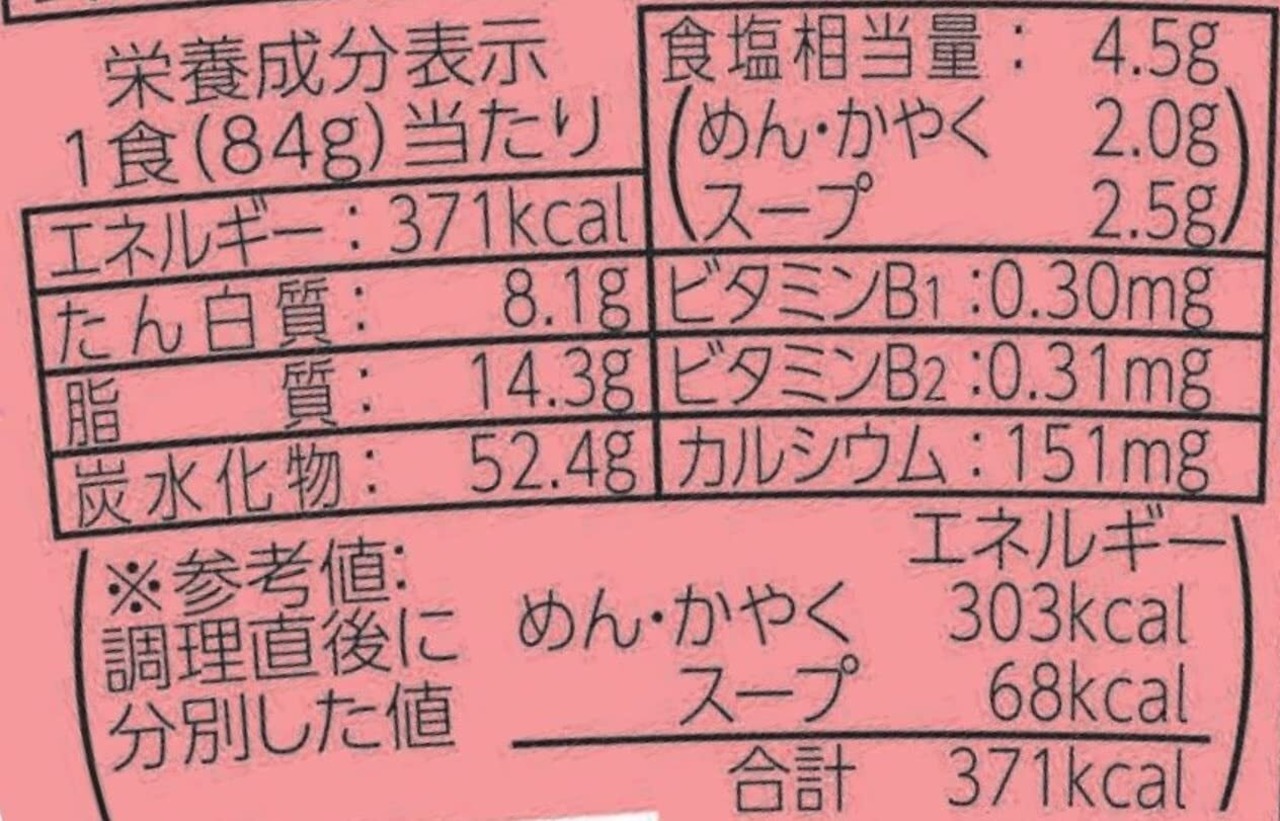 栄養成分表示
1食(84g)当たり
エネルギー:371kcal
たん白質: 8.1g
脂質: 14.3g
炭水化物: 52.4g
食塩相当量: 4.5g
(めん・かやく 2.0g
スープ 2.5g)
ビタミンB1:0.30mg
ビタミンB2:0.31mg
カルシウム:151mg
(※参考値:
調理直後に
分別した値
エネルギー
めん・かやく 303kcal
スープ 68kcal
合計 371kcal)